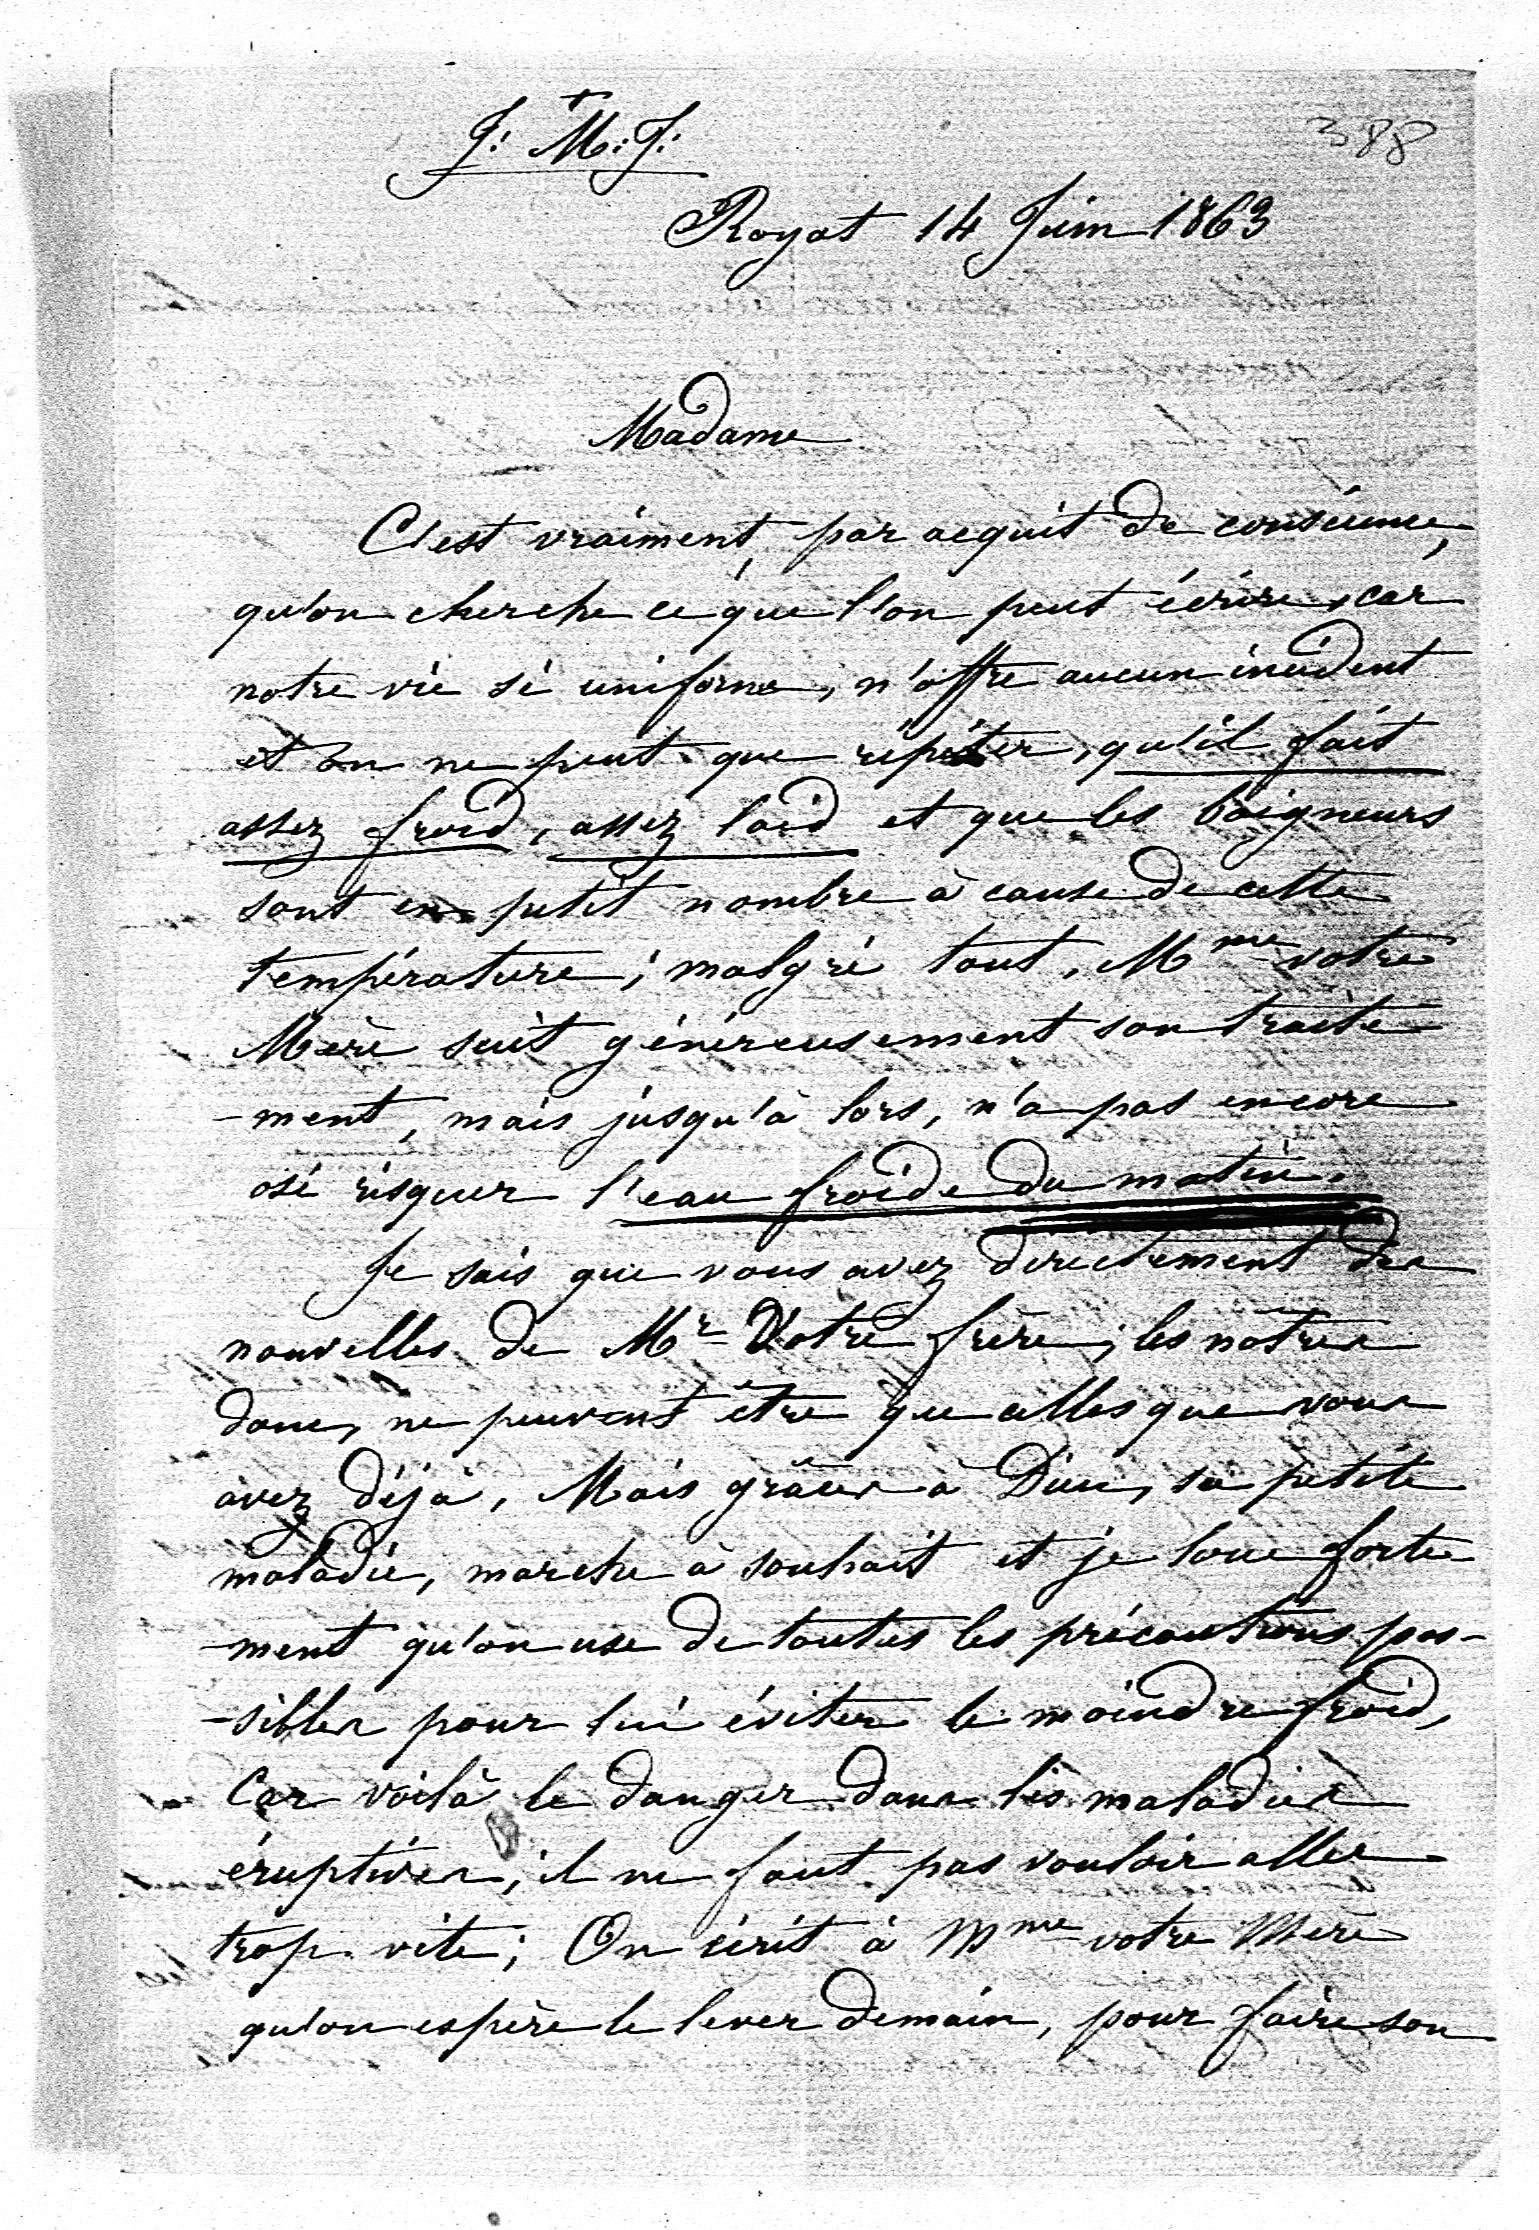 J. M. J.
388
Royat 14 Juin 1863
Madame
C'est vraiment, par acquit de conscience,
qu'on cherche ce que l'on peut écrire, car
notre vie si uniforme, n'offre aucun incident
et on ne peut que répéter, qu'il fait
assez froid, assez laid et que les baigneurs
sont en petit nombre à cause de cette
température; malgré tout, Mme votre
Mère suit généreusement son traite
-ment, mais jusqu'à lors, n'a pas encore
osé risquer l'eau froide du matin.
Je sais que vous avez directement des
nouvelles de Mr Votre frère; les nôtres
donc, ne peuvent être que celles que vous
avez déjà, Mais grâces à Dieu, sa petite
maladie, marche à souhait et je loue forte
-ment qu'on use de toutes les précautions pos-
-sibles pour lui éviter le moindre froid,
Car voilà le danger dans les maladies
éruptives; il ne faut pas vouloir aller
trop vite; On écrit à Mme votre Mère
qu'on espère le lever demain, pour faire son